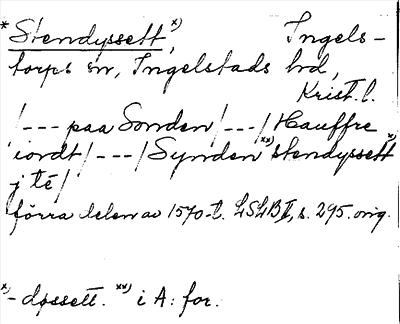 * Stendyssett, x) Ingels-
torps sn, Ingelstads hd,
Krist. l.
/--- paa Sonden/---/Hauffre
iordt/---/Synden xx) stendyssett x)
j té/
förra delen av 1570-t. LSLB II, s. 295. orig.
x) -døssett. xx) i A: for.